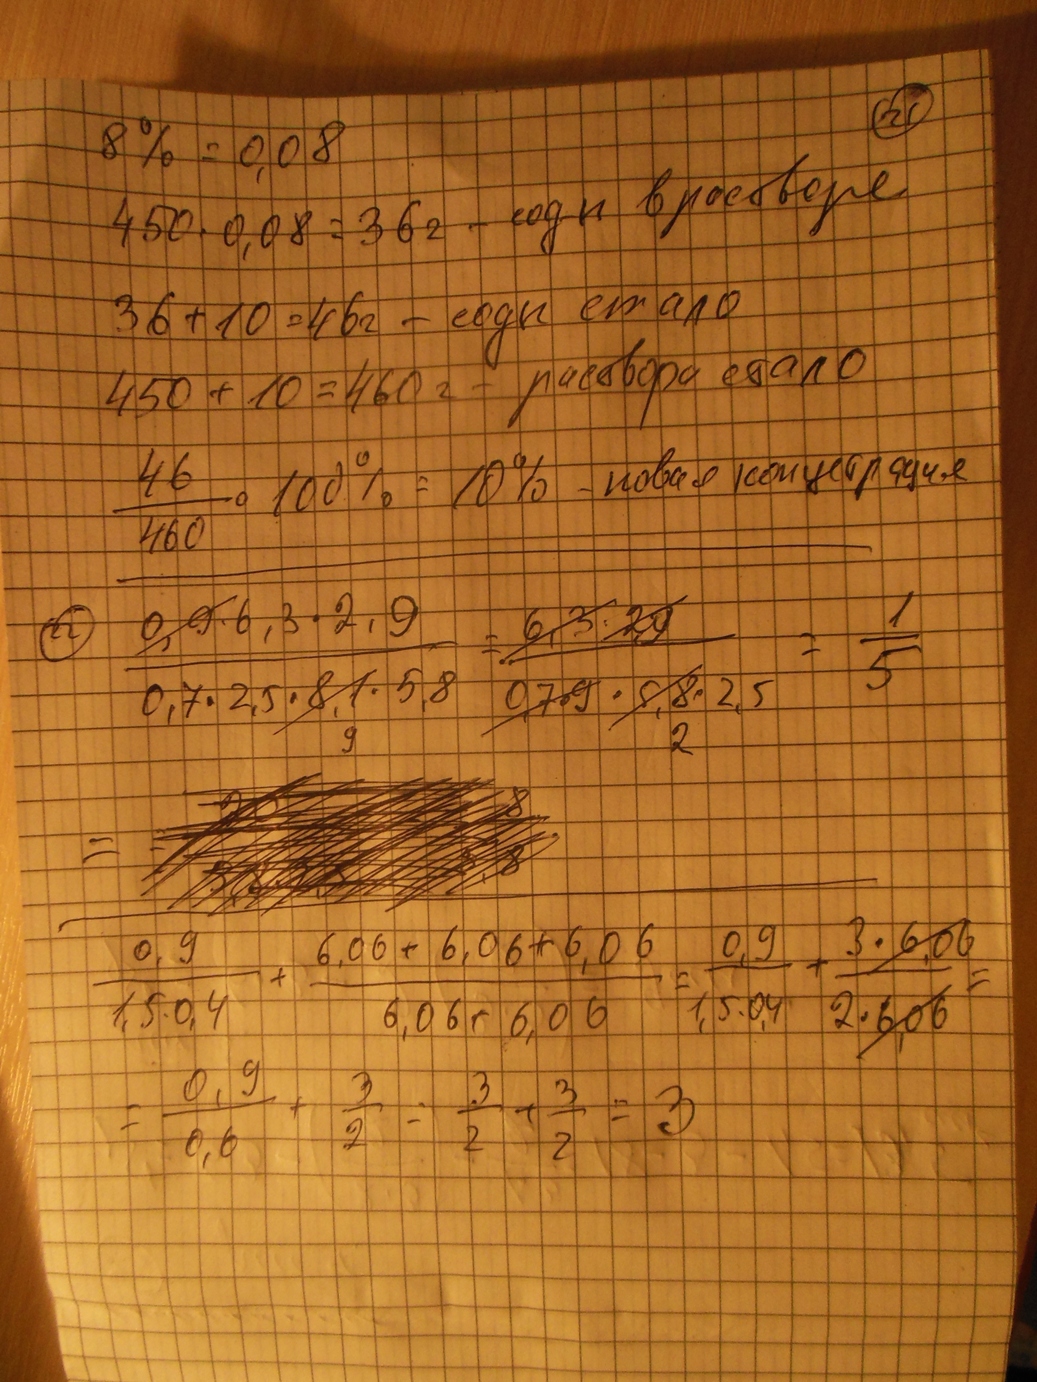 8% = 0,08
450 · 0,08 = 36г - соды в растворе
36 + 10 = 46г - соды стало
450 + 10 = 460г - раствора стало
46/460 · 100% = 10% - новая концетрация
(0,9 · 6,3 · 2,9)/(0,7 · 2,5 · 8,1 · 5,8) = (6,3 · 2,9)/(0,7 · 9 · 5,8 · 2,5) = 1/5
9 2
= =
0,9/(1,5 · 0,4) + (6,06 + 6,06 + 6,06)/(6,06 + 6,06) = 0,9/(1,5 · 0,4) + (3 · 6,06)/(2 · 6,06) =
= 0,9/0,6 + 3/2 = 3/2 + 3/2 = 3